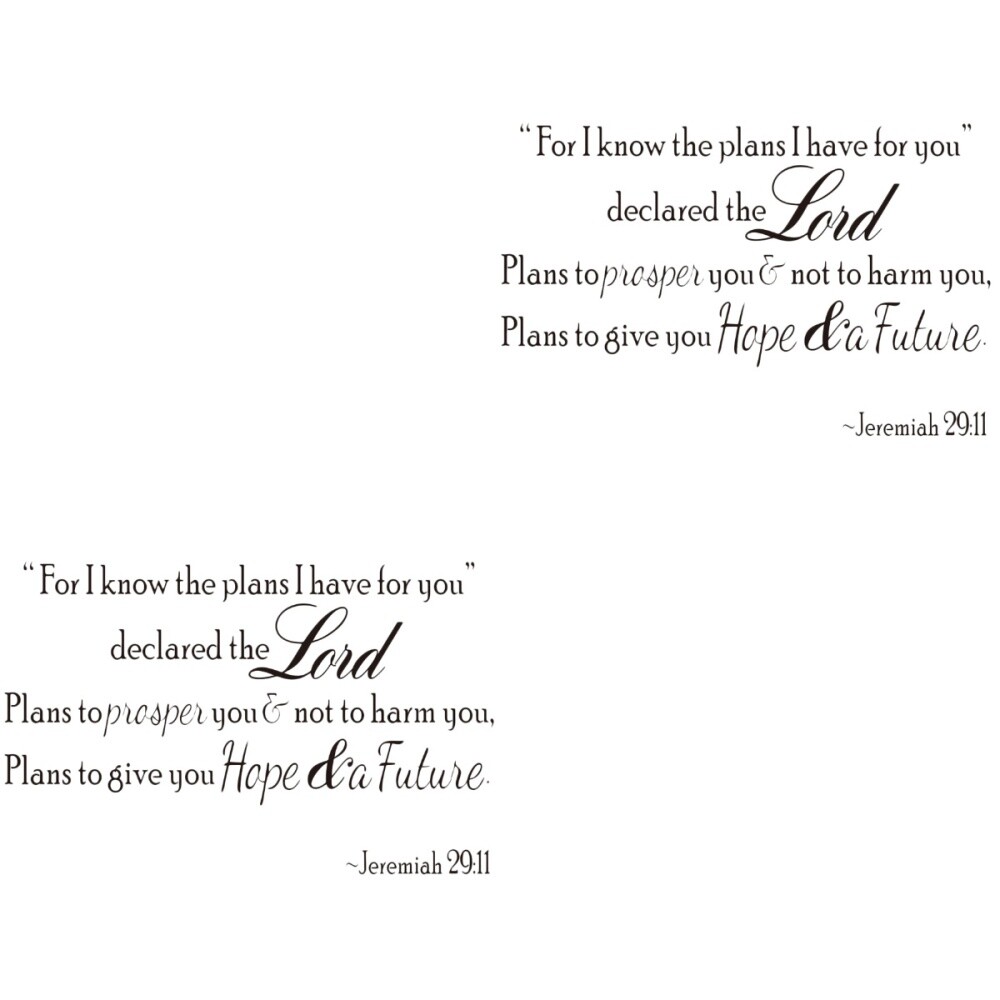 “For I know the plans I have for you”
declared the Lord
Plans to prosper you & not to harm you,
Plans to give you Hope & a Future.
~Jeremiah 29:11
“For I know the plans I have for you”
declared the Lord
Plans to prosper you & not to harm you,
Plans to give you Hope & a Future.
~Jeremiah 29:11